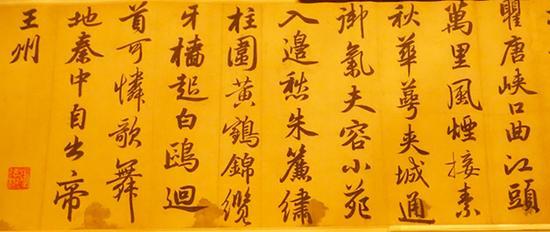 瞿唐峡口曲江頭
萬里風煙接素
秋華萼夹城通
御氣夫容小苑
入邊愁朱簾繡
柱圍黄鶴錦纜
牙檣起白鷗迴
首可憐歌舞
地秦中自古帝
王州